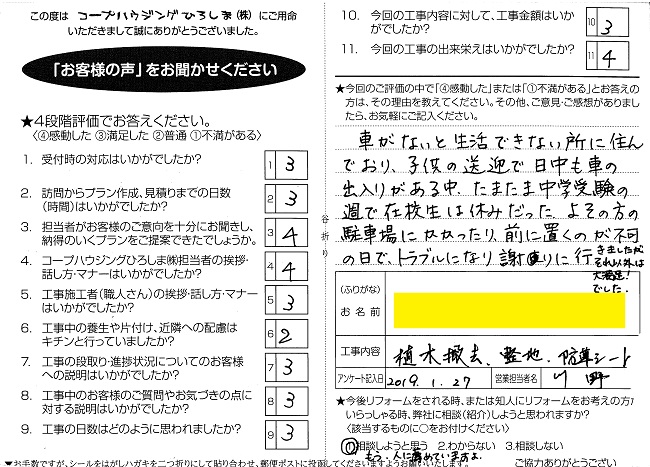 この度は コープハウジングひろしま(株) にご用命
いただきまして誠にありがとうございました。
「お客様の声」をお聞かせください
★4段階評価でお答えください。
〈④感動した ③満足した ②普通 ①不満がある〉
1. 受付時の対応はいかがでしたか?
1 3
2. 訪問からプラン作成、見積りまでの日数
(時間)はいかがでしたか?
2 3
3. 担当者がお客様のご意向を十分にお聞きし、
納得のいくプランをご提案できたでしょうか。
3 4
4. コープハウジングひろしま㈱担当者の挨拶・
話し方・マナーはいかがでしたか?
4 4
5. 工事施工者(職人さん)の挨拶・話し方・マナー
はいかがでしたか?
5 3
6. 工事中の養生や片付け、近隣への配慮は
キチンと行っていましたか?
6 2
7. 工事の段取り・進捗状況についてのお客様
への説明はいかがでしたか?
7 3
8. 工事中のお客様のご質問やお気づきの点に
対する説明はいかがでしたか?
8 3
9. 工事の日数はどのように思われましたか?
9 3
▼お手数ですが、シールをはがしハガキを二つ折りにして貼り合わせ、郵便ポストに投函してくださいますようお願いいたします。
谷折り
10. 今回の工事内容に対して、工事金額はいか
がでしたか?
10 3
11. 今回の工事の出来栄えはいかがでしたか?
11 4
★今回のご評価の中で「④感動した」または「①不満がある」とお答え
の方は、その理由を教えてください。その他、ご意見・ご感想がありまし
たら、お気軽にご記入ください。
車がないと生活できない所に住ん
でおり、子供の送迎で日中も車の
出入りがある中、たまたま中学受験の
週で在校生は休みだった。よその方の
駐車場にかかったり、前に置くのが不可
の日で、トラブルになり謝りに行
きましたが
それ以外は
大満足!
でした。
(ふりがな)
お名前
工事内容
植木撤去、整地、防草シート
アンケート記入日
2019.1.27
営業担当者名
★今後リフォームをされる時、または知人にリフォームをお考えの方が
いらっしゃる時、弊社に相談(紹介)しようと思われますか?
〈該当するものに○をお付けください〉
①相談しようと思う 2.わからない 3.相談しない
もう、人に薦めていますよ。
ご協力ありがとうござい